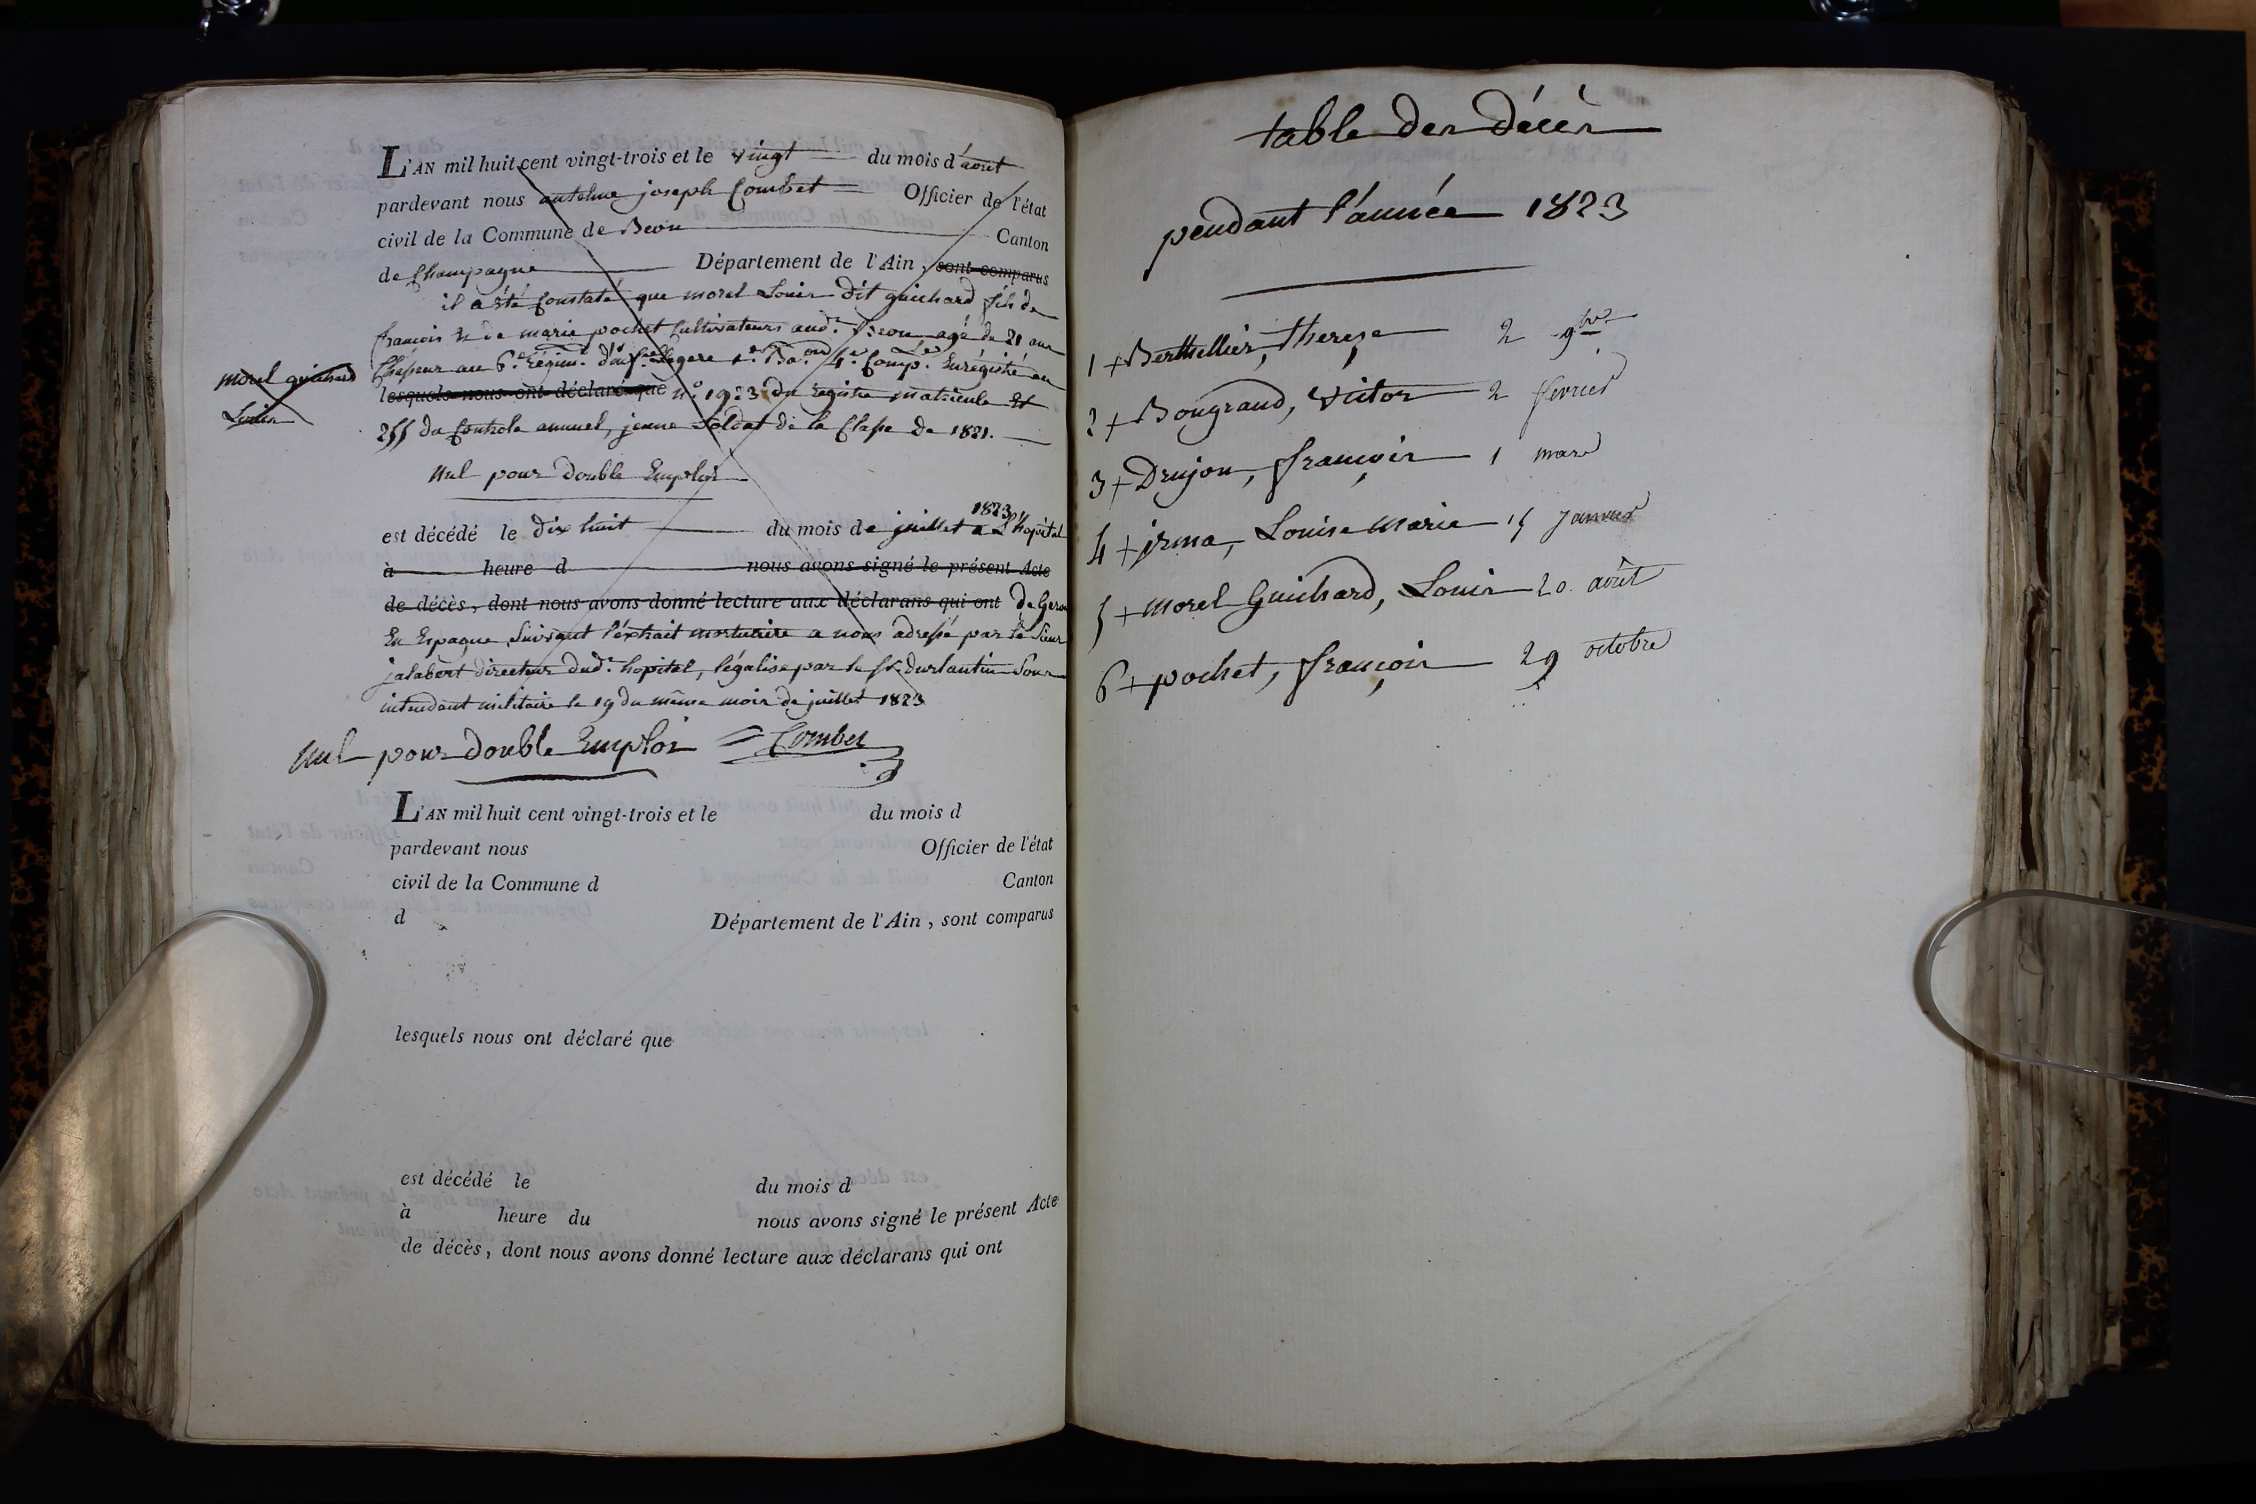 L'AN mil huit cent vingt-trois et le vingt du mois d'août
pardevant nous antelme joseph Combet Officier de l'état
civil de la Commune de Beon Canton
de Champagne Département de l'Ain, sont comparus
il a été constaté que morel Louis dit guichard fils de
françois et de marie pochet cultivateurs aud.t Beon agé de 21 ans
morel guichard
Louis
Chasseur au 6.e régim.t d'inf.ie légere 1.er Ba.on 4.e Comp.e Enrégistré au
lesquels nous ont déclaré que n.o 1923 du registre matricule et
255 du controle annuel, jeune soldat de la Classe de 1821.
Nul pour double Emploi
est décédé le dix huit du mois de juillet 1823 a L'hopital
à heure d nous avons signé le présent Acte
de décès, dont nous avons donné lecture aux déclarans qui ont de Gerone
En Espagne suivant l'éxtrait morturire a nous adressé par le Sieur
jalabert directeur dud.t hopital, légalisé par le Sr. Durlantin Sous
intendant militaire le 19 du même mois de juillet 1823
Nul pour double Emploi = Combet
L'AN mil huit cent vingt-trois et le du mois d
pardevant nous Officier de l'état
civil de la Commune d Canton
d Département de l'Ain, sont comparus
lesquels nous ont déclaré que
est décédé le du mois d
à heure du nous avons signé le présent Acte
de décès, dont nous avons donné lecture aux déclarans qui ont
table des décès
pendant l'année 1823
1 + Berthellier, therese 2 9bre
2 + Bougrand, victor 2 fevrier
3 + Drujon, françois 1 mars
4 + irma, Louise Marie 15 Janvier
5 + Morel Guichard, Louis 20 août
6 + pochet, françois 29 octobre